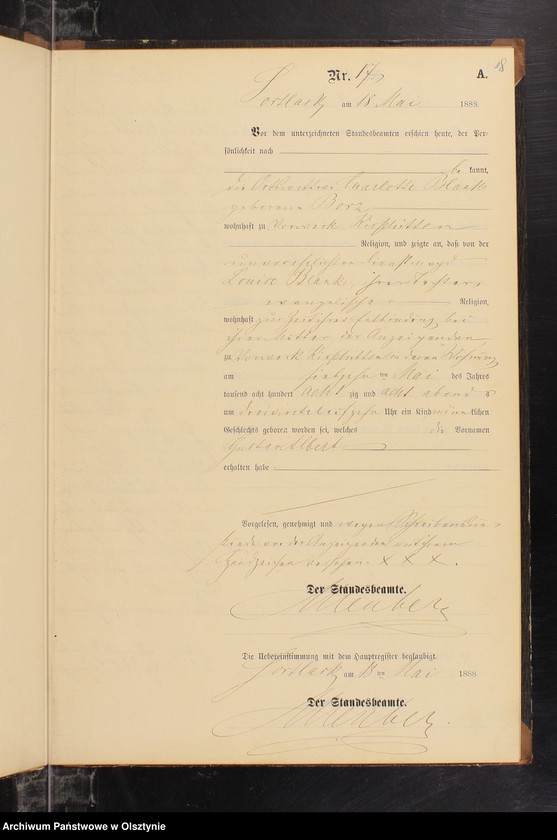 18
Nr. 17.
A.
Sortlack am 18 Mai 1888.
Vor dem unterzeichneten Standesbeamten erschien heute, der Per-
sönlichkeit nach
be kannt,
die Charlotte Blank
geborene Borz
wohnhaft zu Vorwerk
Religion, und zeigte an, daß von der
unverehelichten Dienstmagd
Louise Blank, ihrer Tochter
evangelischer Religion,
wohnhaft zur Zeit ihrer Entbindung bei
ihrer Mutter der Anzeigenden
zu Vorwerk in deren Wohnung
am siebzehn ten Mai des Jahres
tausend acht hundert acht zig und acht abends
um dreiviertel Uhr ein Kind männ lichen
Geschlechts geboren worden sei, welches die Vornamen
Gustav Albert
erhalten habe
Vorgelesen, genehmigt und wegen
von der Anzeigenden mit ihrem
Handzeichen versehen. X X X.
Der Standesbeamte.
Die Uebereinstimmung mit dem Hauptregister beglaubigt.
Sortlack am 18 ten Mai 1888
Der Standesbeamte.
Archiwum Państwowe w Olsztynie